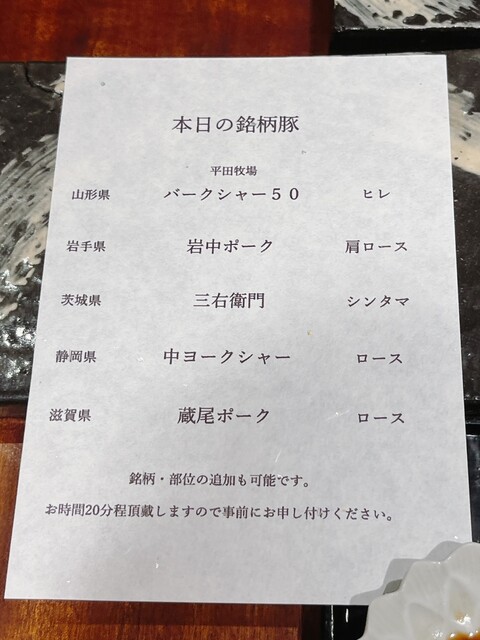 本日の銘柄豚
平田牧場
山形県 バークシャー５０ ヒレ
岩手県 岩中ポーク 肩ロース
茨城県 三右衛門 シンタマ
静岡県 中ヨークシャー ロース
滋賀県 蔵尾ポーク ロース
銘柄・部位の追加も可能です。
お時間20分程頂戴しますので事前にお申し付けください。